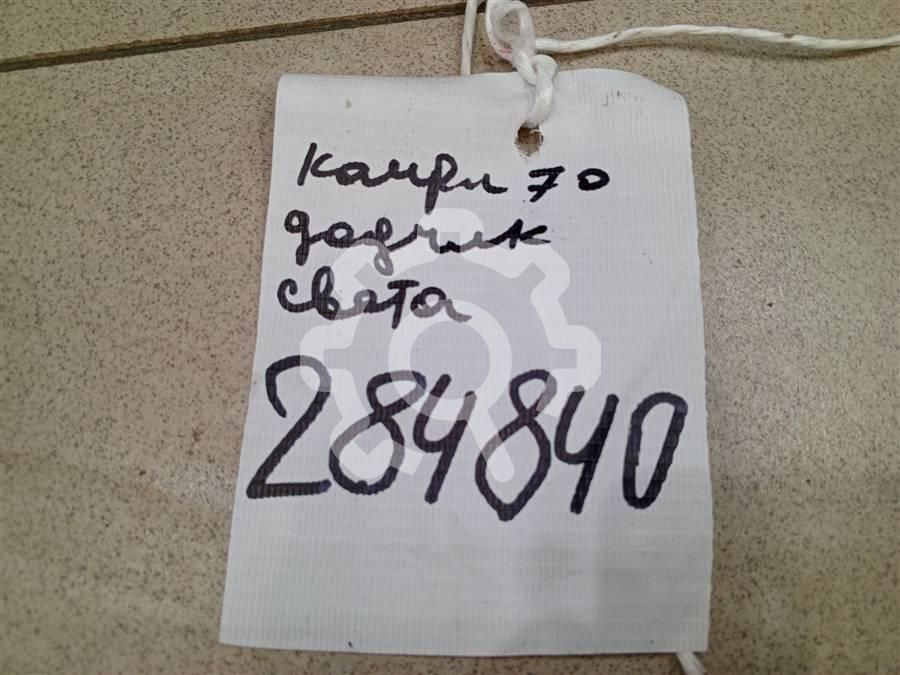 Камри 70
дадчик
света
284840